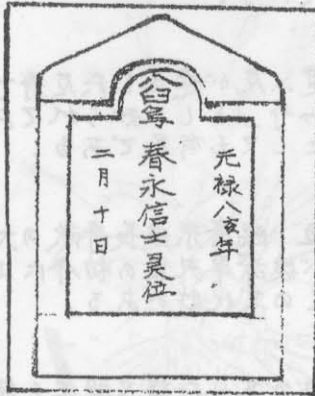 元禄八亥年
春永信士灵位
二月十日